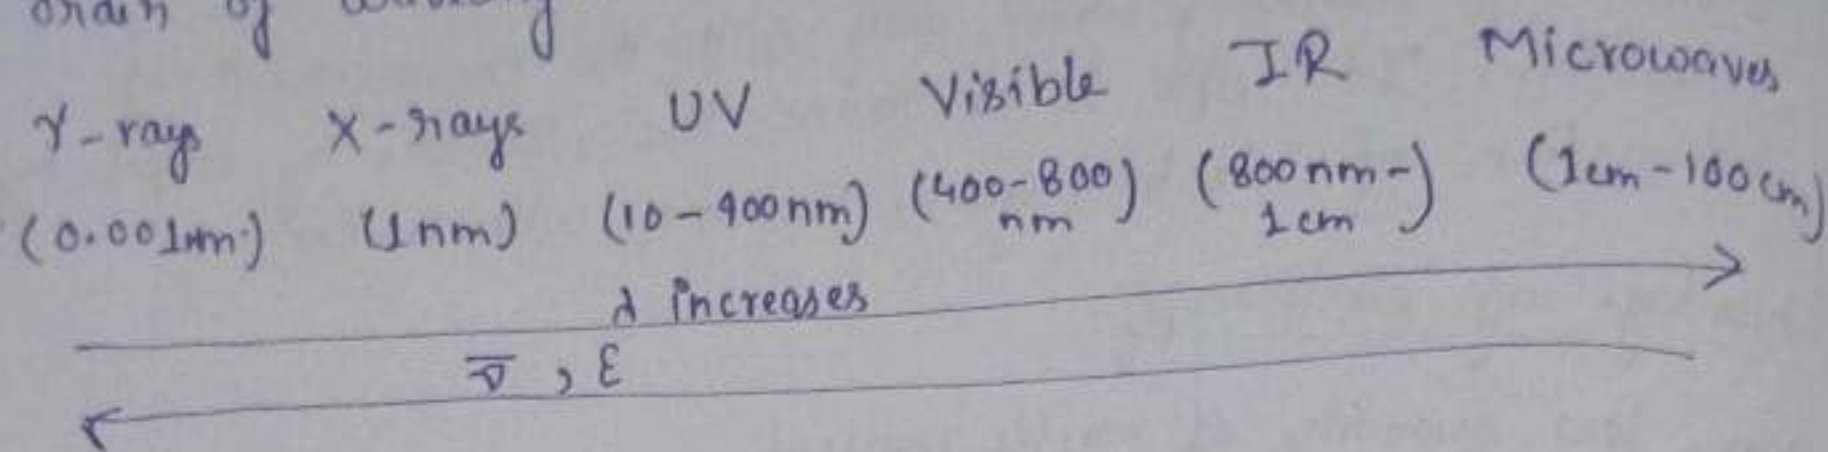 order of
γ-rays X-rays UV Visible IR Microwaves
(0.001nm) (1nm) (10-400nm) (400-800 nm) (800nm- 1cm) (1cm-100cm)
λ increases
ν̅, E